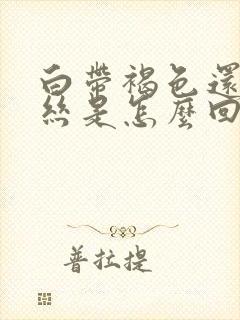 白帶褐色還
絲是怎麼回
普拉提